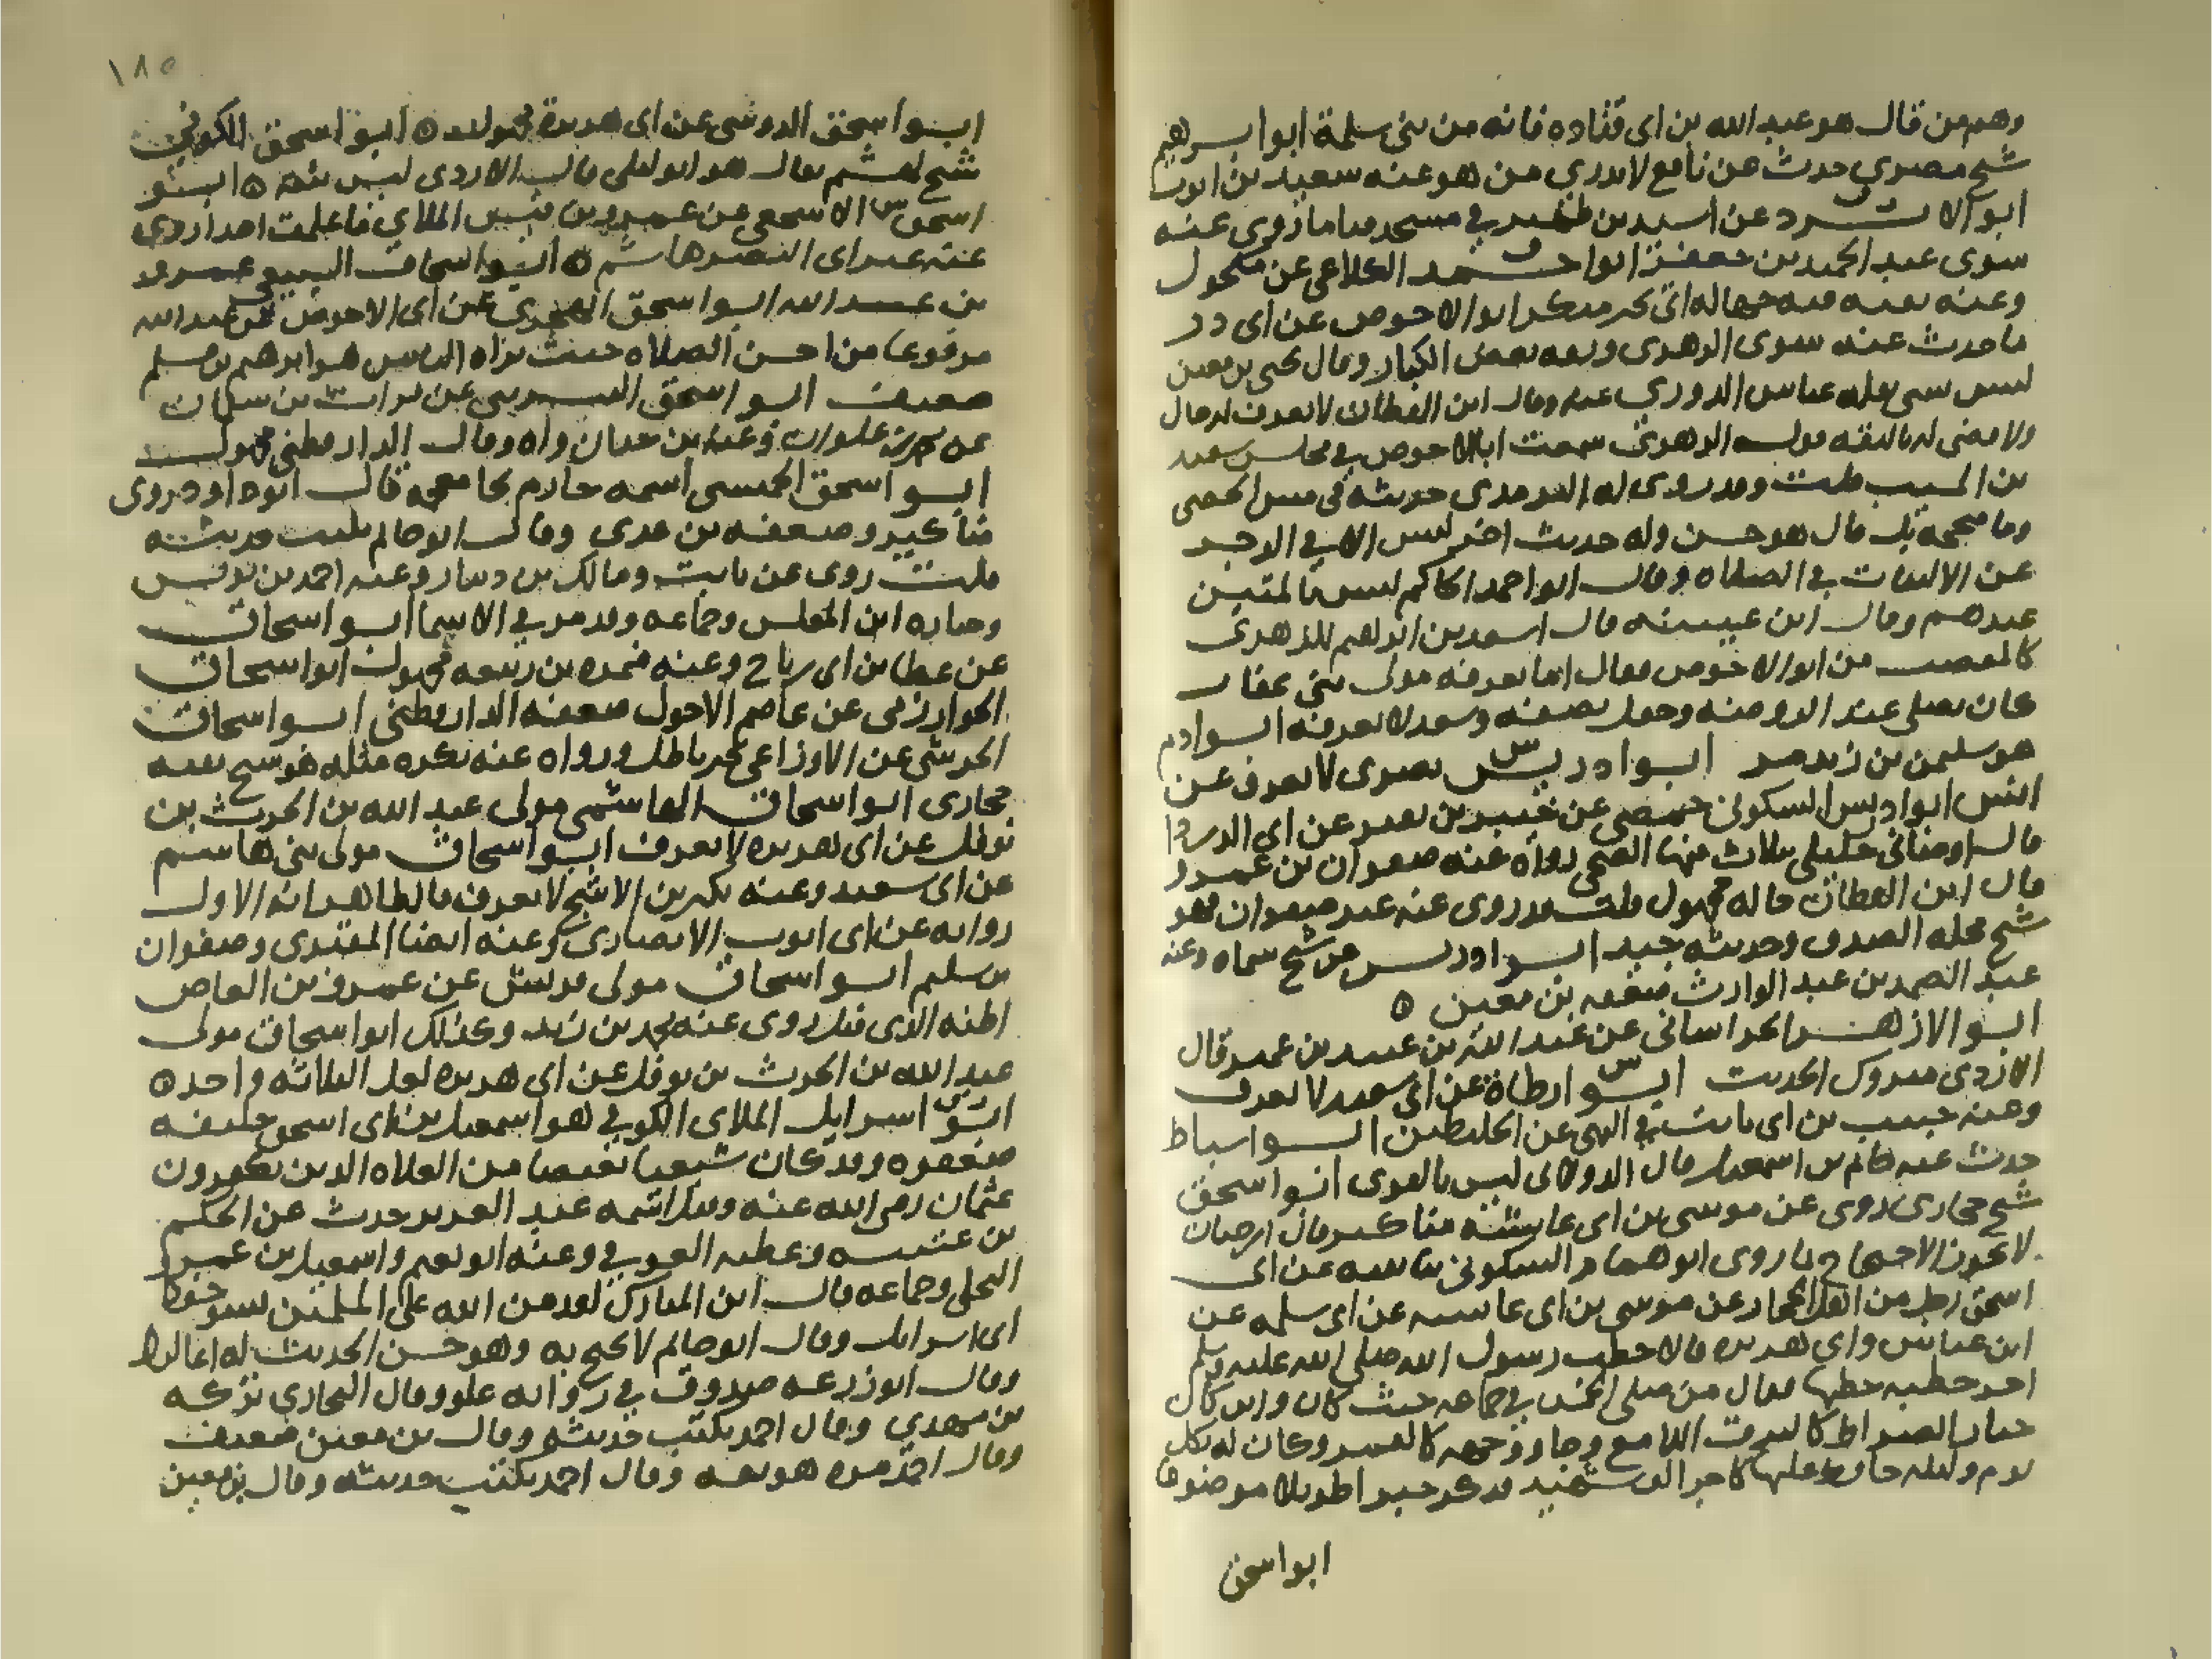 وهم من قال هو عبد الله بن ابى قتاده فانه من بنى سلمة ابو ابرهيم
شيخ مصري حدث عن نافع لا يدرى من هو عنه سعيد بن ايوب
ابو الا سرد عن اسيد بن ظهير في مسجد قبا ما روى عنه
سوى عبد الحميد بن جعفر ابو احمد الكلاعى عن مكحول
وعنه بقيه فيه جهاله اتى بخبر منكر ابو الاحوص عن ابى ذر
ما حدث عنه سوى الزهرى وثقه بعض الكبار وقال يحيى بن معين
ليس بشى نقله عباس الدوري عنه وقال ابن القطان لا يعرف له حال
ولا قضى له بالثقه قول الزهرى سمعت ابا الاحوص في مجلس سعيد
بن المسيب قلت وقد روى له الترمذى حديثه في مس الحصى
وما صححه بل قال هو حسن وله حديث اخر ليس الا في الوجـ
عن الالتفات في الصلاه وقال ابو احمد الحاكم ليس بالمتين
عندهم وقال ابن عيينه قال سعد بن ابرهيم للزهرى
كالمغضب من ابو الاحوص فقال اما تعرفه مولى بنى غفار
كان يصلى عند الروضه وجعل يصفه وسعد لا يعرفه ابو ادم
هو سليمن بن زيد مر ابو ادريس بصرى لا يعرف عن
انس ابو ادريس السكونى حمصى عن جبير بن نفير عن ابى الدردا
قال اوصانى خليلى بثلاث منها الضحى رواه عنه صفوان بن عمرو
قال ابن القطان حاله مجهول قلت قد روى عنه غير صفوان فهو
شيخ محله الصدق وحديثه جيد ابو ادريس عن شيخ سماه وعنه
عبد الصمد بن عبد الوارث ضعفه بن معين ه
ابو الازهر الخراسانى عن عبد الله بن عبيد بن عمير قال
الازدى متروك الحديث ابو ارطاة عن ابى سعيد لا يعرف
وعنه حبيب بن ابى ثابت في النهى عن الخليطين ابو اسباط
حدث عنه حاتم بن اسمعيل قال الدولابى ليس بالقوى ابو اسحق
شيخ حجازى روى عن موسى بن ابى عايشه مناكير قال ابن حبان
لا يجوز الاحتجاج به روى ابو همام السكونى ثنا بقيه عن ابى
اسحق رجل من اهل الحجاز عن موسى بن ابى عايشه عن ابى سلمه عن
ابن عباس وابى هريره قالا خطب رسول الله صلى الله عليه وسلم
اخر خطبه خطبها فقال من صلى الخمس في جماعه حيث كان واين كان
جاز الصراط كالبرق اللامع وجا ووجهه كالقمر وكان له بكل
يوم وليله حافظ عليها كاجر الف شهيد فذكر خبرا طويلا موضوعا
ابو اسحق
١٨٥
ابو اسحق الدوسى عن ابى هريرة مجهول ه ابو اسحق الكوفى
شيخ لهشيم يقال هو ابو ليلى قال الازدى ليس بثقه ه ابو
اسحق الاشجعى عن عمرو بن قيس الملاي ما علمت احدا روى
عنه غير ابى النضر هاشم ه ابو اسحاق السبيعى عمرو
بن عبد الله ابو اسحق الهجرى عن ابى الاحوص عن عبد الله
مرفوعا من احسن الصلاه حيث يراه الناس هو ابرهيم بن مسلم
ضعيف ابو اسحق عن فرات بن سلمان
عن محمد بن علوان وعنه بن حبان واه وقال الدارقطنى مجهول
ابو اسحق الحميسى اسمه خازم بخا معجمه قال ابو داود روى
مناكير وضعفه بن عدى وقال ابو حاتم يكتب حديثه
قلت روى عن ثابت ومالك بن دينار وعنه احمد بن يونس
وجباره ابن المغلس وجماعه وقد مر في الاسما ابو اسحاق
عن عطا بن ابى رباح وعنه ضمره بن ربيعه مجهول ابو اسحاق
الخوارزمى عن عاصم الاحول ضعفه الدارقطنى ابو اسحاق
الحرشى عن الاوزاعى بخبر باطل ورواه عنه نكره مثله هو شيخ بقيه
حجازى ابو اسحاق الهاشمى مولى عبد الله بن الحرث بن
نوفل عن ابى هريره لا يعرف ابو اسحاق مولى بنى هاشم
عن ابى سعيد وعنه بكير بن الاشج لا يعرف فالظاهر انه الاول
روايه عن ابى ايوب الانصارى وعنه ايضا المقبرى وصفوان
بن سليم ابو اسحاق مولى قريش عن عمرو بن العاص
اظنه الذى قبله روى عنه محمد بن زيد وكذلك ابو اسحاق مولى
عبد الله بن الحرث بن نوفل عن ابى هريره لعل الثلاثه واحد ه
ابو اسرايل الملاى الكوفي هو اسمعيل بن ابى اسحق خليفه
ضعفوه وقد كان شيعيا بغيضا من الغلاه الذين يكفرون
عثمان رضى الله عنه وقيل اسمه عبد العزيز حدث عن الحكم
بن عتيبه وعطيه العوفي وعنه ابو نعيم واسمعيل بن عمرو
البجلى وجماعه قال ابن المبارك لقد من الله على المسلمين بسو حفظ
ابى اسرايل وقال ابو حاتم لا يحتج به وهو حسن الحديث له اغاليط
وقال ابو زرعه صدوق في رايه غلو وقال البخارى تركه
بن مهدي وقال احمد يكتب حديثه وقال بن معين ضعيف
وقال اخر مره هو ثقه وقال احمد يكتب حديثه وقال بن معين